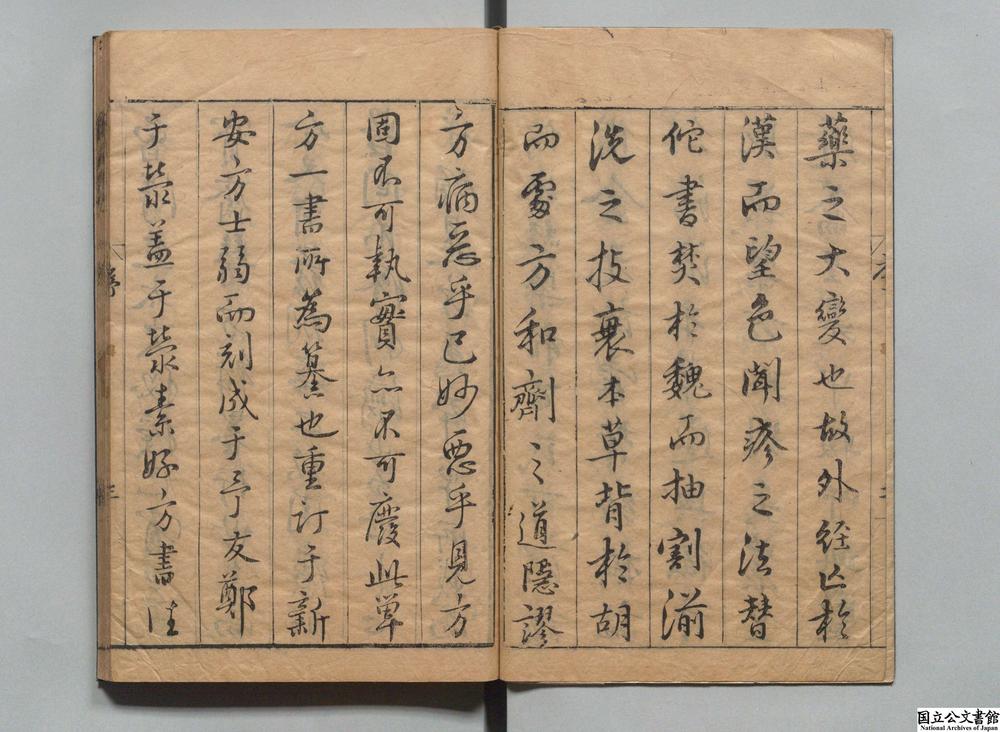 藥之大變也故外經亡於
漢而望色聞疹之法替
佗書焚於魏而抽割湔
洗之技衰本草背於胡
而處方和齊之道隱謬
方痛惡乎已妙惡乎見方
固不可執實亦不可廢此單
方一書所為纂也重訂于新
安方士弱而刻成于予友鄭
于蓥蓋于蓥素好方書
序
三
国立公文書館
National Archives of Japan